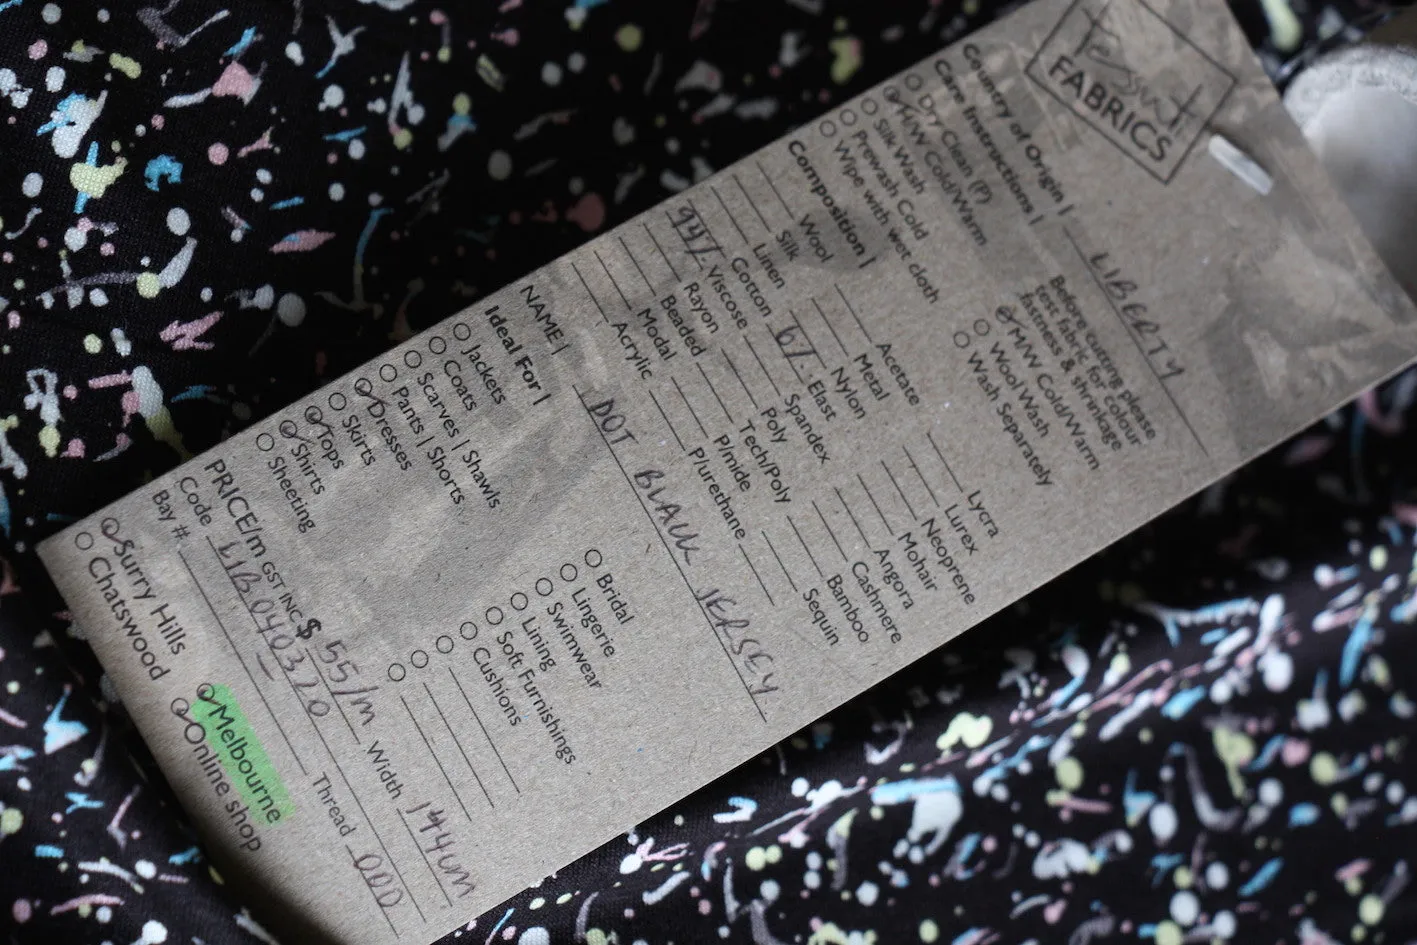 Tessuti
FABRICS
Country of Origin | LIBERTY
Care Instructions |
Dry Clean (P)
H/W Cold/Warm
Silk Wash
Prewash Cold
Wipe with wet cloth
Before cutting please
test fabric for colour
fastness & shrinkage
M/W Cold/Warm
Wool Wash
Wash Separately
Composition |
Wool
Silk
Linen
Cotton
94% Viscose
Rayon
Beaded
Modal
Acrylic
Acetate
Metal
Nylon
6% Elast
Spandex
Poly
Tech/Poly
P/mide
P/urethane
Lycra
Lurex
Neoprene
Mohair
Angora
Cashmere
Bamboo
Sequin
NAME | DOT BLACK JERSEY
Ideal For |
Jackets
Coats
Scarves | Shawls
Pants | Shorts
Dresses
Skirts
Tops
Shirts
Sheeting
Bridal
Lingerie
Swimwear
Lining
Soft Furnishings
Cushions
PRICE/m GST INC $ 55/m Width 144cm
Code LIB040320 Thread 000
Bay #:
Surry Hills
Chatswood
Melbourne
Online shop